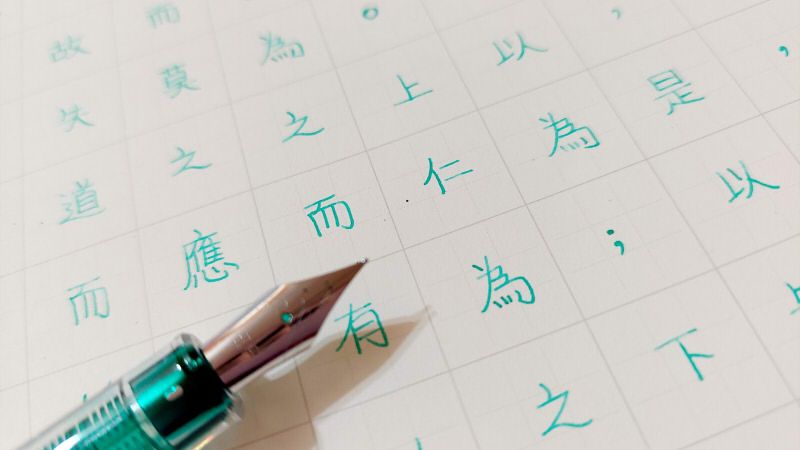 ，
，是以
以為；下
。上仁為之
為之而有
而莫之應
故失道而